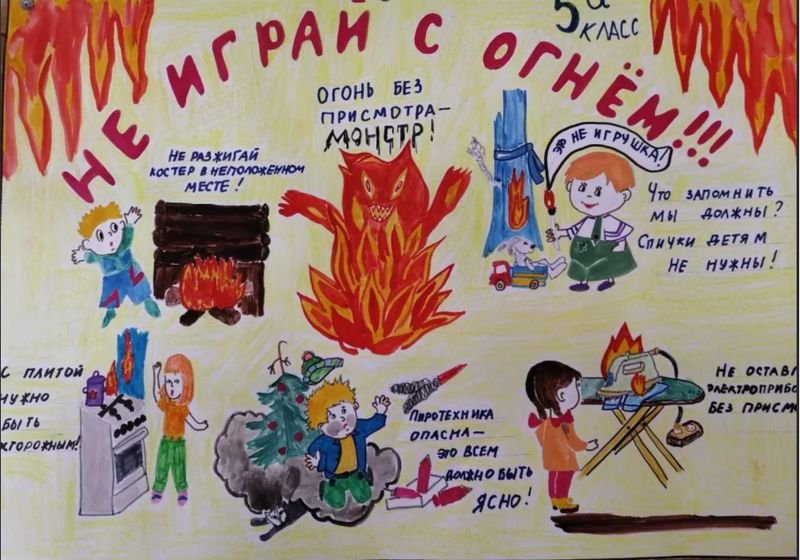 5 а
КЛАСС
НЕ ИГРАЙ С ОГНЁМ!!!
ОГОНЬ БЕЗ
ПРИСМОТРА-
МОНСТР!
НЕ РАЗЖИГАЙ
КОСТЕР В НЕПОЛОЖЕННОМ
МЕСТЕ!
ЭТО НЕ ИГРУШКА!
ЧТО ЗАПОМНИТЬ
МЫ ДОЛЖНЫ?
СПИЧКИ ДЕТЯМ
НЕ НУЖНЫ!
С ПЛИТОЙ
НУЖНО
БЫТЬ
СТОРОЖНЫМ!
ПИРОТЕХНИКА
ОПАСНА-
ЭТО ВСЕМ
ДОЛЖНО БЫТЬ
ЯСНО!
НЕ ОСТАВЛ
ЭЛЕКТРОПРИБО
БЕЗ ПРИСМО